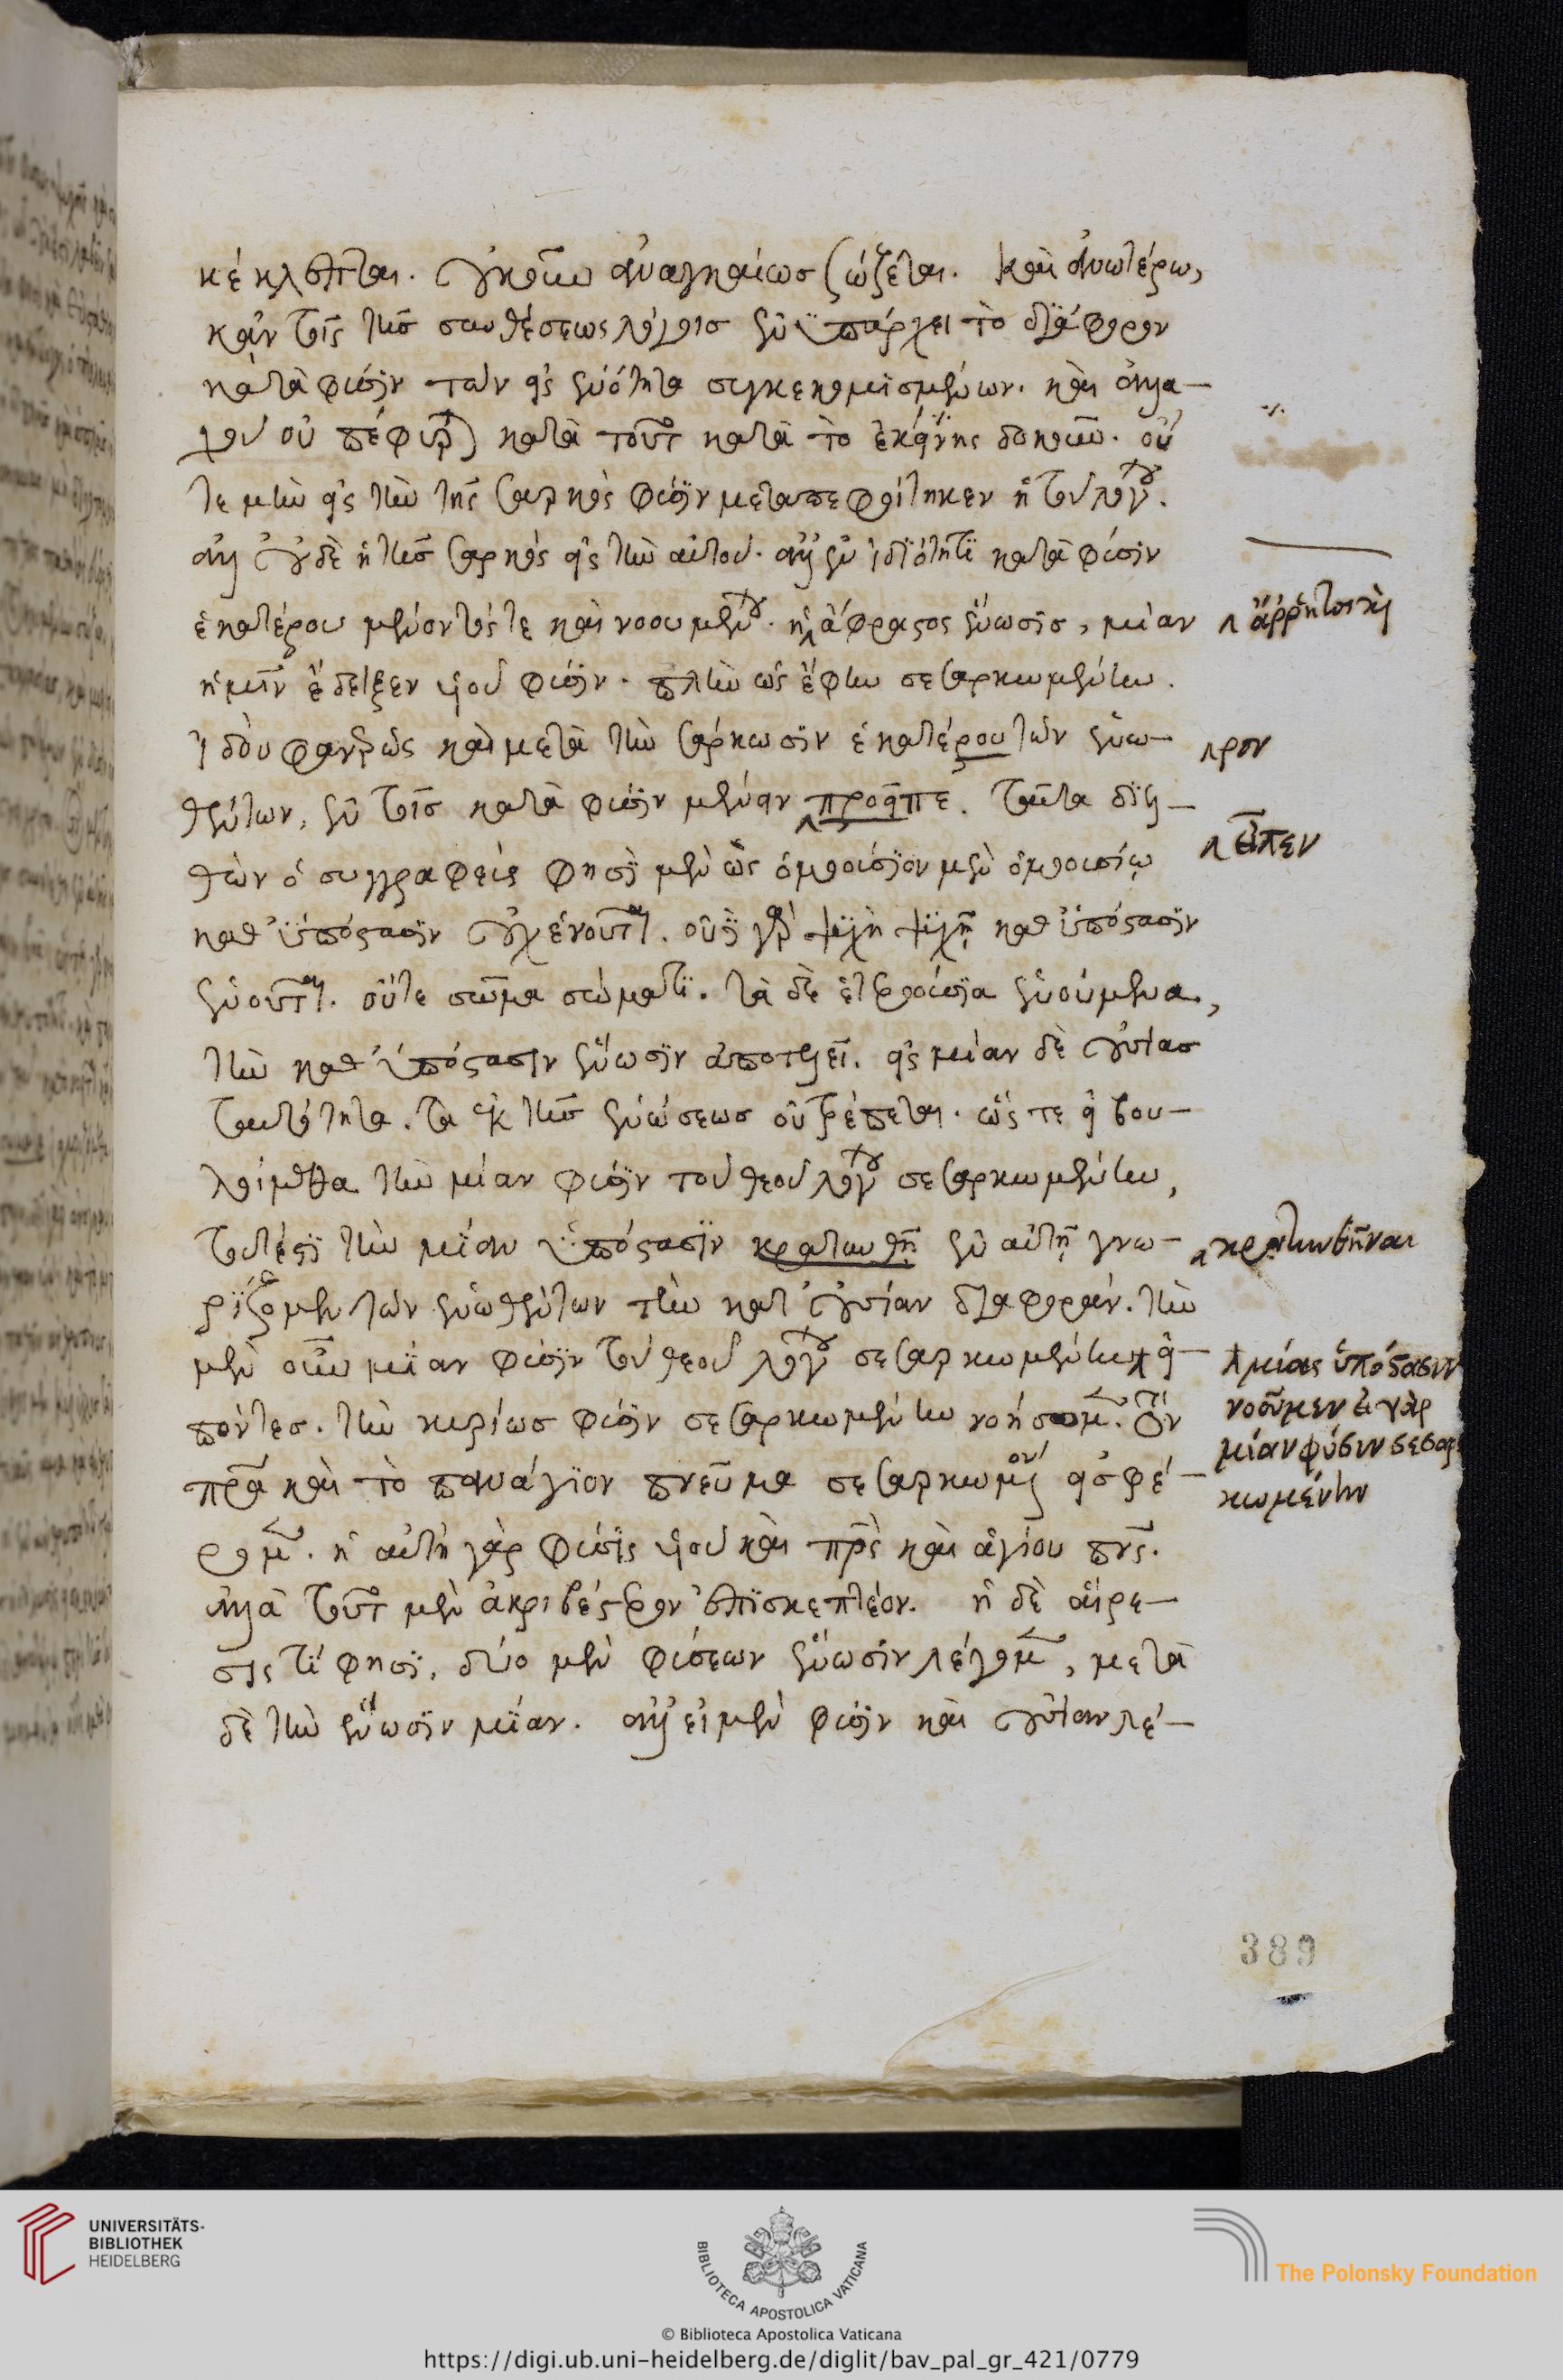 κέκλεπται. οὐκοῦν ἀναγκαίως σώζεται. καὶ ἀνωτέρω,
κἀν τοῖς τῆς συνθέσεως λόγοις ἐνυπάρχει τὸ διάφορον
κατὰ φύσιν τῶν εἰς ἑνότητα συγκεκομισμένων. καὶ ἀλλα-
χοῦ οὐ πέφυρται κατὰ τοῦτο κατὰ τὸ ἐκείνοις δοκοῦν. οὔ
τε μὴν εἰς τὴν τῆς σαρκὸς φύσιν μεταπεφοίτηκεν ἡ τοῦ λόγου.
ἀλλ' οὐδὲ ἡ τῆς σαρκὸς εἰς τὴν αὐτοῦ. ἀλλ' ἐν ἰδιότητι κατὰ φύσιν
ἑκατέρου μένοντός τε καὶ νοουμένου. ἡ ἄφραστος ἕνωσις, μίαν
ἄρρητος καὶ
ἡμῖν ἔδειξεν υἱοῦ φύσιν. πλὴν ὡς ἔφην σεσαρκωμένην.
ἰδοὺ φανερῶς καὶ μετὰ τὴν σάρκωσιν ἑκατέρου τῶν ἑνω-
ρον
θέντων, ἐν τοῖς κατὰ φύσιν μένειν προεῖπε. ταῦτα διελ-
εἶπεν
θὼν ὁ συγγραφεύς φησι μὲν ὡς ὁμοούσιον μὲν ὁμοουσίῳ
καθ' ὑπόστασιν οὐχ ἑνοῦται. οὔτε γὰρ ψυχὴ ψυχῇ καθ' ὑπόστασιν
ἑνοῦται. οὔτε σῶμα σώματι. τὰ δὲ ἑτεροούσια ἑνούμενα,
τὴν καθ' ὑπόστασιν ἕνωσιν ἀποτελεῖ. εἰς μίαν δὲ οὐσίας
ταυτότητα. τὰ ἐκ τῆς ἑνώσεως οὐ τρέπεται. ὥστε εἰ βου-
λοίμεθα τὴν μίαν φύσιν τοῦ θεοῦ λόγου σεσαρκωμένην,
τουτέστι τὴν μίαν ὑπόστασιν κρατυνθῇ ἐν αὐτῇ γνω-
κρατυνθῆναι
ρίζομεν τῶν ἑνωθέντων τὴν κατ' οὐσίαν διαφοράν. τὴν
μὲν οὖν μίαν φύσιν τοῦ θεοῦ λόγου σεσαρκωμένην εἰ-
μίας ὑπόστασιν
νοοῦμεν εἰ γὰρ
μίαν φύσιν σεσαρ
κωμένην
πόντες. τὴν κυρίως φύσιν σεσαρκωμένην νοήσομεν.
πρα καὶ τὸ πανάγιον πνεῦμα σεσαρκωμένον εἰσφέ-
ρομεν. ἡ αὐτὴ γὰρ φύσις υἱοῦ καὶ πρς καὶ ἁγίου πνς.
ἀλλὰ τοῦτο μὲν ἀκριβέστερον ἐπισκεπτέον. ἡ δὲ αἵρε-
σις τί φησι, δύο μὲν φύσεων ἕνωσιν λέγομεν, μετὰ
δὲ τὴν ἕνωσιν μίαν. ἀλλ' εἰ μὲν φύσιν καὶ οὐσίαν λέ-
389
UNIVERSITÄTS-
BIBLIOTHEK
HEIDELBERG
BIBLIOTECA APOSTOLICA VATICANA
The Polonsky Foundation
© Biblioteca Apostolica Vaticana
https://digi.ub.uni-heidelberg.de/diglit/bav_pal_gr_421/0779